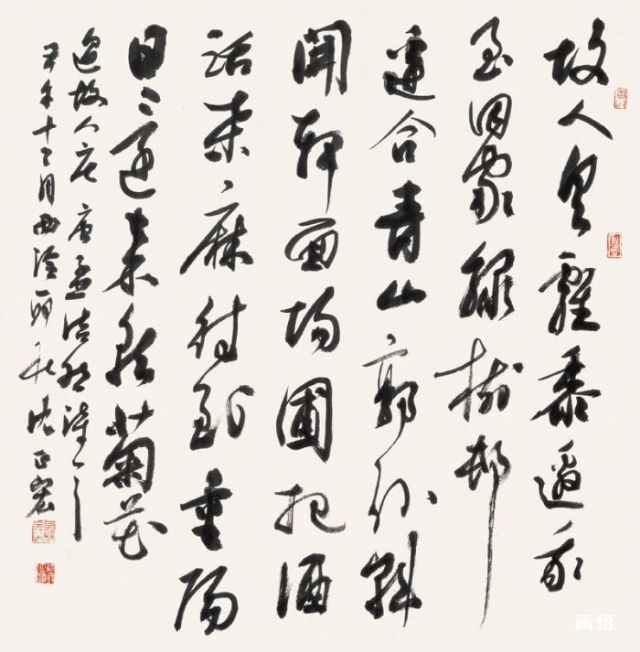 故人具雞黍邀我
至田家綠樹邨
邊合青山郭外斜
開軒面場圃把酒
話桑麻待到重陽
日還來就菊花
過故人庄唐孟浩然詩
午十二月西泠沈正宏
画悟